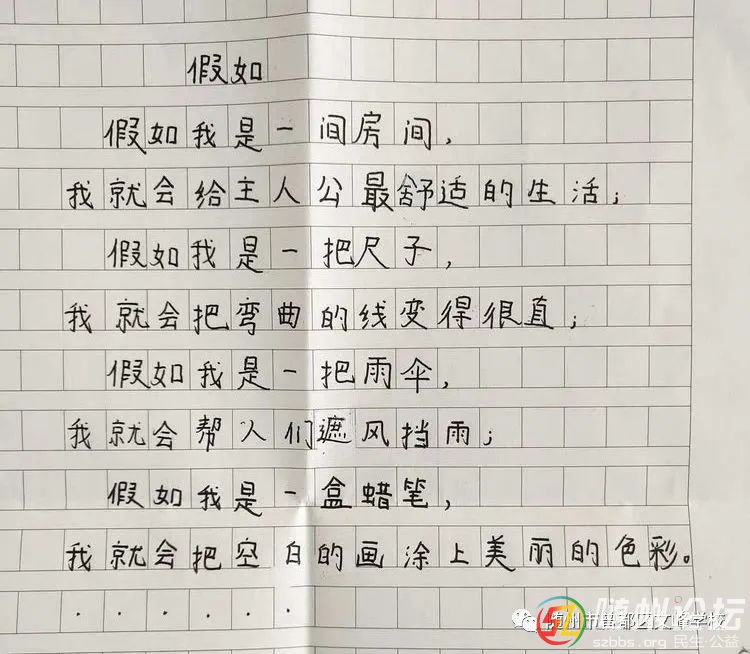 假如
假如我是一间房间，
我就会给主人公最舒适的生活；
假如我是一把尺子，
我就会把弯曲的线变得很直；
假如我是一把雨伞，
我就会帮人们遮风挡雨；
假如我是一盒蜡笔，
我就会把空白的画涂上美丽的色彩。
......
随州市曾都区文峰学校
随州论坛
szbbs.org 民生·公益